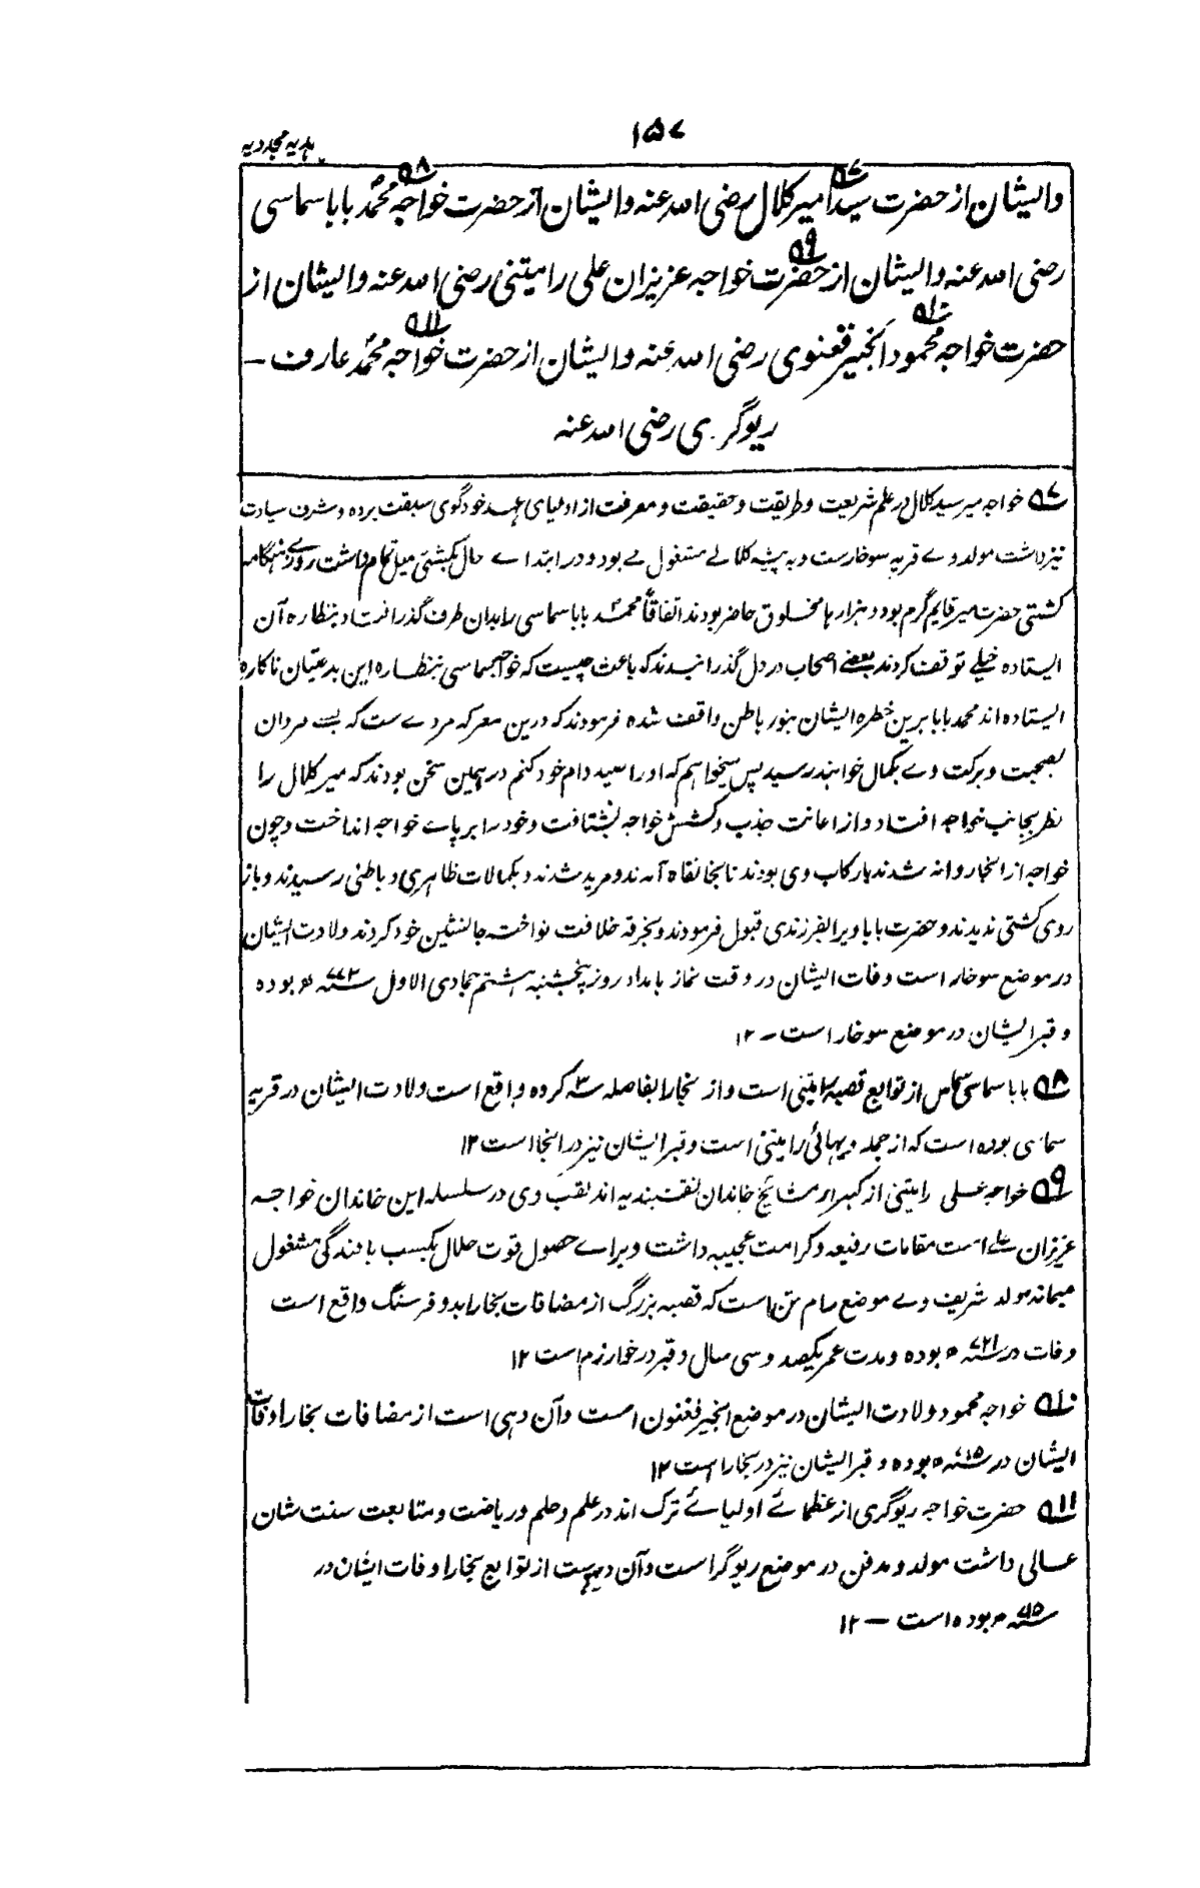 ۱۵۷
ہدیہ مجددیہ
والیشان از حضرت سید امیر کلال رضی اللہ عنہ والیشان از حضرت خواجہ محمد بابا سماسی
رضی اللہ عنہ والیشان از حضرت خواجہ عزیزان علی رامیتنی رضی اللہ عنہ والیشان از
حضرت خواجہ محمود انجیر فغنوی رضی اللہ عنہ والیشان از حضرت خواجہ محمد عارف –
ریوگری رضی اللہ عنہ
۵۷ خواجہ میر سید کلال در علم شریعت و طریقت و حقیقت و معرفت از اولیای عہد خود گوی سبقت بردہ و شرف سیادت
نیز داشت مولد وے قریہ سوخارست و بہ پیشہ کلالے مشغول مے بود و در ابتداے حال بکشتی میل تمام داشت روزے ہنگامہ
کشتی حضرت میر قایم گرم بود و ہزارہا مخلوق حاضر بودند اتفاقاً محمد بابا سماسی را بدان طرف گذر افتاد بنظارہ آن
ایستادہ خیلے توقف کردند بعضے اصحاب در دل گذرانیدند کہ باعث چیست کہ خواجہ سماسی بنظارہ این بدعتیان ناکارہ
ایستادہ اند محمد بابا برین خطرہ ایشان بنور باطن واقف شدہ فرمودند کہ درین معرکہ مردے ست کہ بسے مردان
بصحبت و برکت وے بکمال خواہند رسید پس میخواہم کہ او را صید دام خود کنم در ہمین سخن بودند کہ میر کلال را
نظر بجانب خواجہ افتاد و از اعانت جذب و کشش خواجہ بشتافت و خود را بر پاے خواجہ انداخت و چون
خواجہ از انجا روانہ شدند بارکاب وی بودند تا بخانقاہ آمدند و مرید شدند و بکمالات ظاہری و باطنی رسیدند و باز
روی کشتی ندیدند و حضرت بابا ویرا بفرزندی قبول فرمودند و بخرقہ خلافت نواختہ جانشین خود کردند ولادت ایشان
در موضع سوخار است وفات ایشان در وقت نماز بامداد روز پنجشنبہ ہشتم جمادی الاول سنہ ۷۷۲ ھ بودہ
و قبر ایشان در موضع سوخار است – ۱۲
۵۸ بابا سماسی سماس از توابع قصبہ رامیتنی است و از بخارا بفاصلہ سہ کروہ واقع است ولادت ایشان در قریہ
سماسی بودہ است کہ از جملہ دیہائی رامیتنی است و قبر ایشان نیز در انجا است ۱۲
۵۹ خواجہ علی رامیتنی از کبرار مشائخ خاندان نقشبندیہ اند لقب وی در سلسلہ این خاندان خواجہ
عزیزان علی است مقامات رفیعہ و کرامت عجیبہ داشت و براے حصول قوت حلال بکسب بافندگی مشغول
میماند مولد شریف وے موضع رامیتن است کہ قصبہ بزرگ از مضافات بخارا بدو فرسنگ واقع است
وفات در سنہ ۷۲۱ ھ بودہ و مدت عمر یکصد و سی سال و قبر در خوارزم است ۱۲
۵۱۰ خواجہ محمود ولادت ایشان در موضع انجیر فغنون است وآن دہی است از مضافات بخارا وفات
ایشان در سنہ ۷۱۵ ھ بودہ و قبر ایشان نیز در بخارا است ۱۲
۵۱۱ حضرت خواجہ ریوگری از عظمائے اولیائے ترک اند در علم و حلم و ریاضت و متابعت سنت شان
عالی داشت مولد و مدفن در موضع ریوگر است وآن دیہیست از توابع بخارا وفات ایشان در
سنہ ۷۱۵ ھ بودہ است – ۱۲